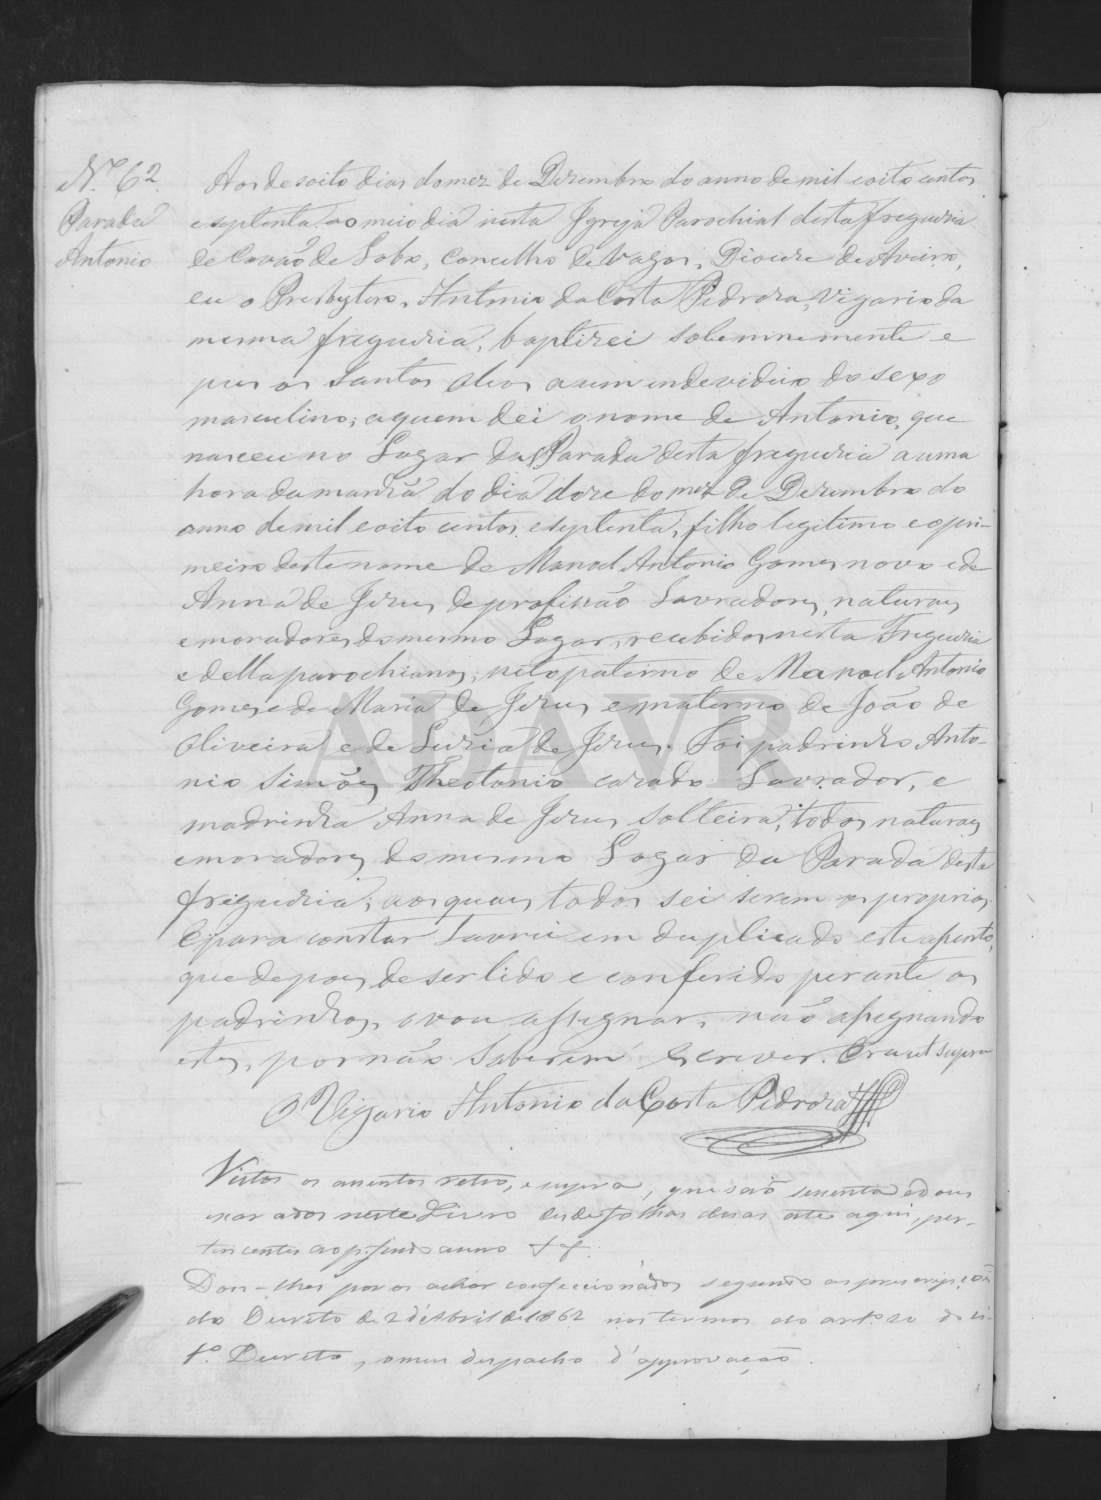 N.º 62.
Parada
Antonio
Aos desoito dias do mez de Dezembro do anno de mil e oito centos
e septenta ao meio dia nesta Igreja Parochial desta freguezia
de Covão de Lobo, Concelho de Vagos, Diocese de Aveiro,
eu o Presbytero, Antonio da Costa Pedroza, Vigario da
mesma freguezia, baptizei solemnemente e
puz os Santos Oleos a um individuo do sexo
masculino; a quem dei o nome de Antonio, que
nasceu no Lugar da Parada desta freguezia a uma
hora da manhã do dia doze do mez de Dezembro do
anno de mil e oito centos e septenta, filho legitimo e o pri-
meiro deste nome de Manoel Antonio Gomes novo e de
Anna de Jezus de profissão Lavradores, naturaes
e moradores do mesmo Lugar, recebidos nesta Freguezia
e della parochianos; neto paterno de Manoel Antonio
Gomes e de Maria de Jezus e materno de João de
Oliveira e de Luzia de Jezus. Foi padrinho Anto-
nio Simões Theotonio cazado Lavrador, e
madrinha Anna de Jezus solteira, todos naturaes
e moradores do mesmo Lugar da Parada desta
freguezia, aos quaes todos sei serem os proprios.
E para constar lavrei em duplicado este assento,
que depois de ser lido e conferido perante os
padrinhos, o vou assignar, não assignando
estes, por não saberem escrever. Era ut supra
O Vigario Antonio da Costa Pedroza
Vistos os assentos retro, e supra, que são sessenta e dous
exarados neste Livro desde folhas duas até aqui, per-
tencentes ao p. findo anno
Dou-lhes por os achar confeccionados segundo as prescripções
do Decreto de 2 d'Abril de 1862 nos termos do art.º 20 do ci-
t.º Decreto, o meu despacho d'approvação.
ADAVR